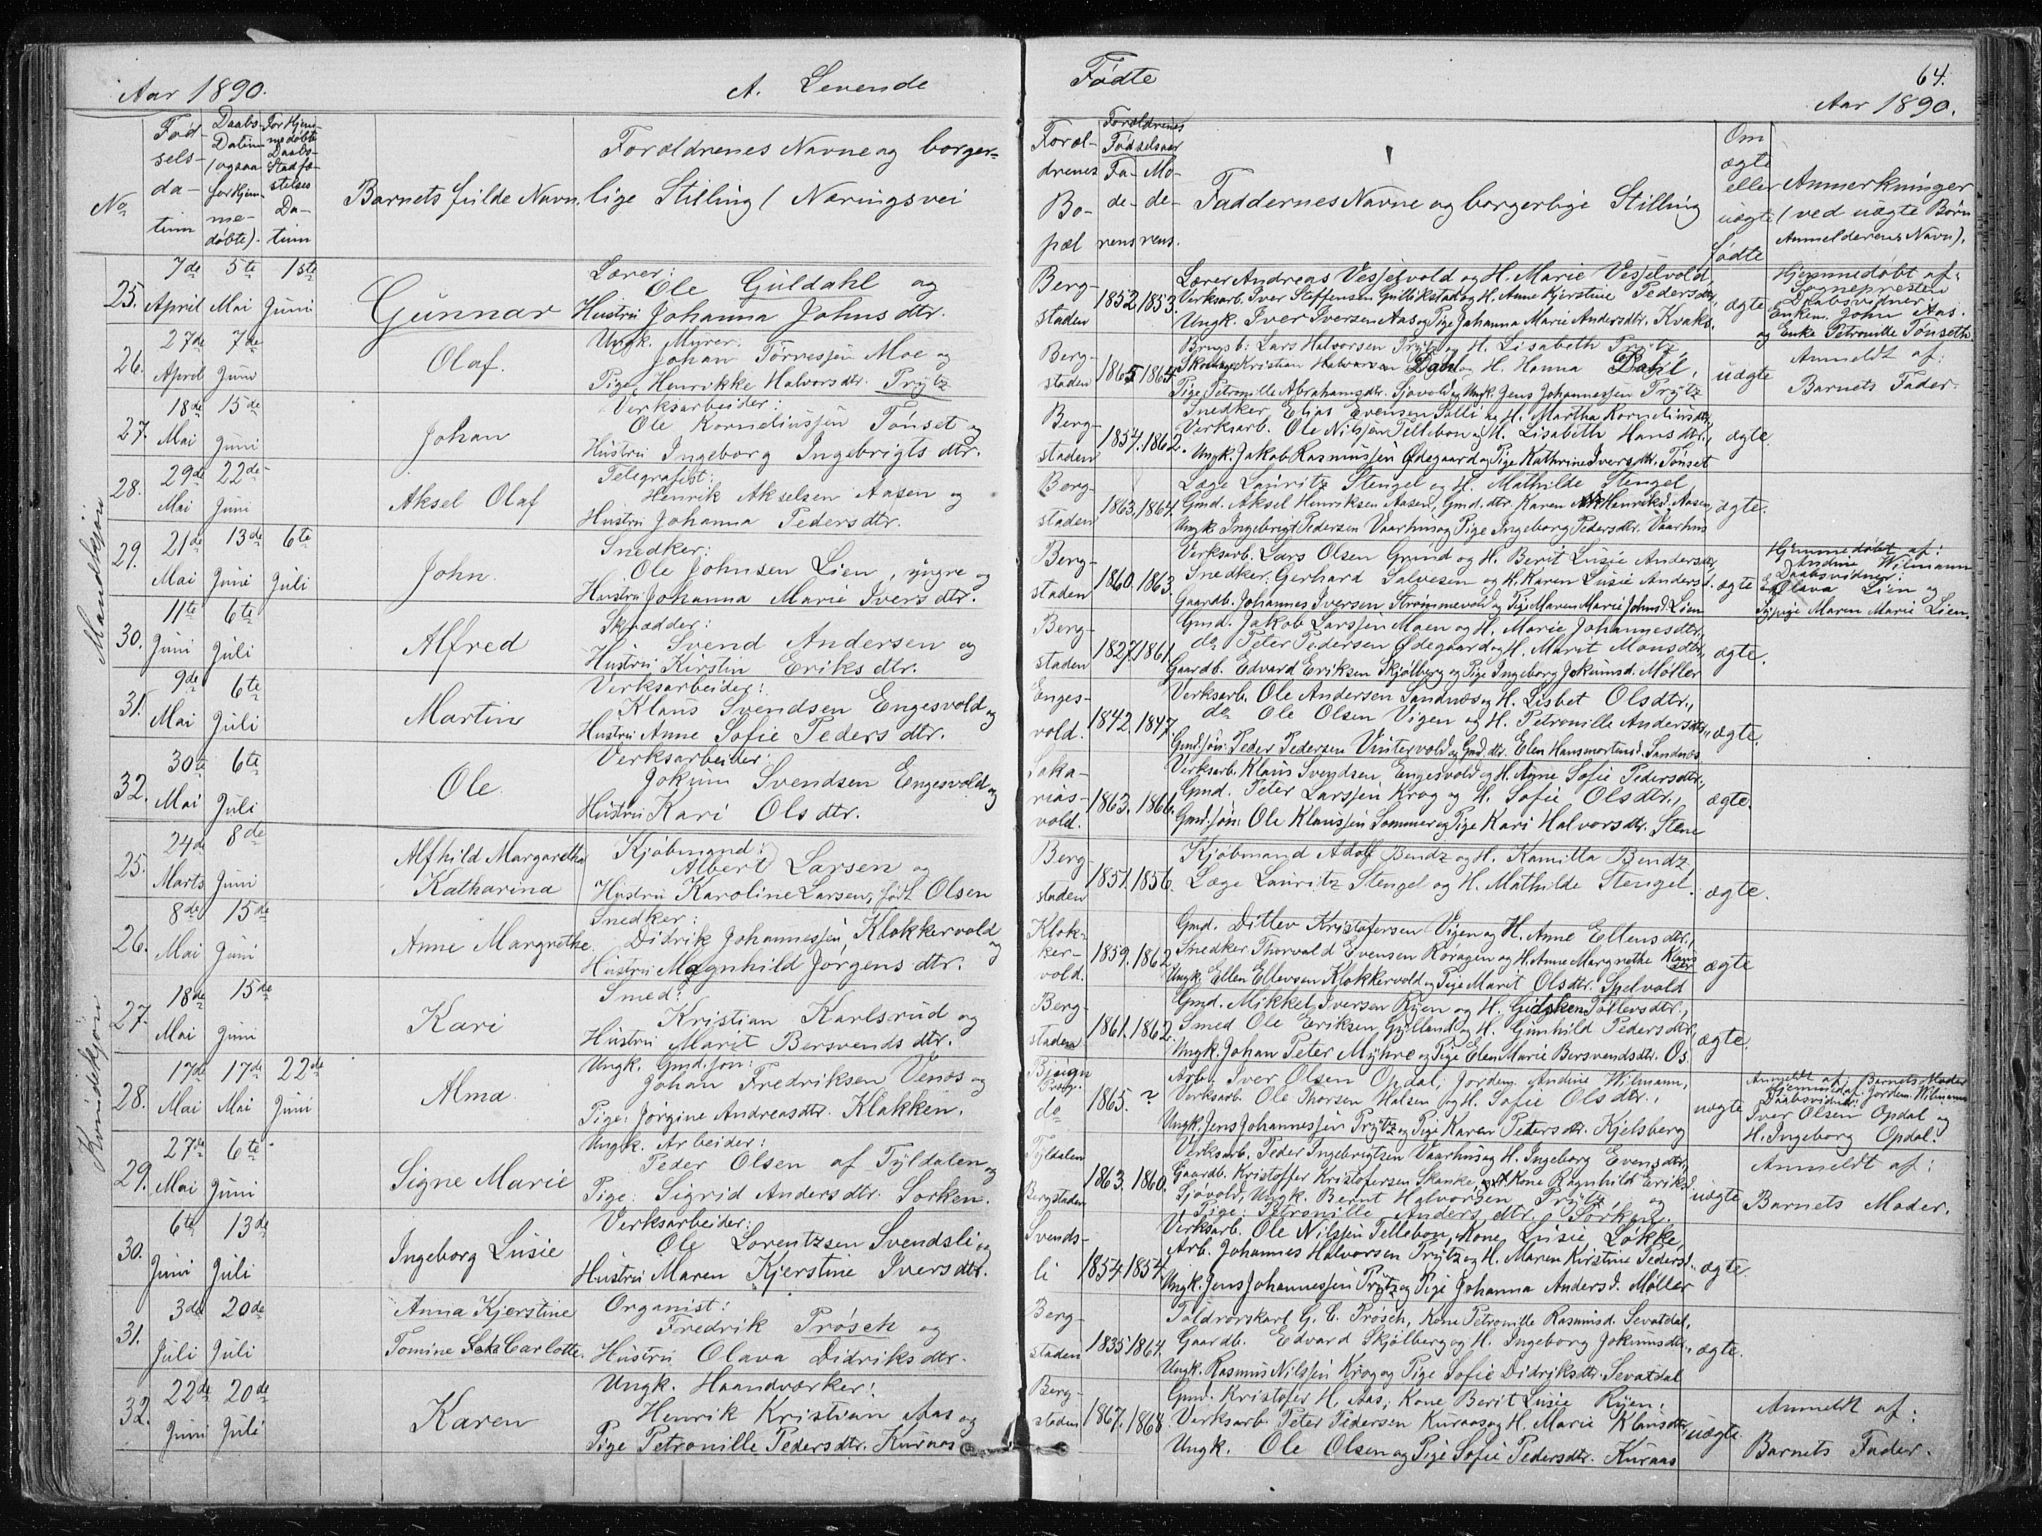 Aar 1890.
A. Levende
Fødte
64.
Aar 1890.
No
Fød-
sels-
da-
tum
Daabs-
Datum
(ogsaa
for Hjem-
me-
døbte).
For Hjem-
medøbte
Daabs-
Stadfæ-
stelses
Da-
tum
Barnets fulde Navn.
Forældrenes Navne og borger-
lige Stilling (Næringsvei
Foræl-
drenes
Bo-
pæl
Forældrenes
Fødselsaar
Fa-
de-
rens
Mo-
de-
rens.
Faddernes Navne og borgerlige Stilling
Om
ægte
eller
uægte
Fødte
Anmerkninger
(ved uægte Børn
Anmelderens Navn).
Mandkjøn
25.
7de
April
5te
Mai
1ste
Juni
Gunnar
Lærer:
Ole Guldahl og
Hustru Johanna Johnsdtr.
Berg-
staden
1852.
1853.
Lærer Andreas Vesjelvold og H. Marie Vesjelvold,
Verksarb. Iver Steffensen Gullikstad og H. Anne Kjerstine Pedersdtr,
Ungk. Iver Iversen Aas og Pige Johanna Marie Andersdtr. Kvaks.
ægte
Hjemmedøbt af:
Sognepresten
Daabsvidner:
Enkem. John Aas.
og Enke Petronille Tønseth
26.
27de
April
7de
Juni
Olaf.
Ungk. Myrer:
Johan Torressen Moe og
Pige, Henrikke Halvorsdtr. Prytz
Berg-
staden
1865
1864
Brugsb. Lars Halvorsen Prytz og H. Lisabeth Prytz,
Skomager Kristian Halvorsen Dahl og H. Hanna Dahl,
Pige Petronille Abrahamsdtr. Sjøvold og Ungk. Jens Johannessen Prytz
uægte
Anmeldt af:
Barnets Fader.
27.
18de
Mai
15de
Juni
Johan
Verksarbeider:
Ole Korneliussen Tønset og
Hustru Ingeborg Ingebrigtsdtr.
Berg-
staden
1854.
1862.
Snedker, Elias Evensen Solli og H. Martha Korneliusdtr,
Verksarb. Ole Nilssen Tellebon og H. Lisabeth Hansdtr.,
Ungk. Jakob Rasmussen Ødegaard og Pige Kathrine Iversdtr. Tønset
ægte.
28.
29de
Mai
22de
Juni
Aksel Olaf
Telegrafist:
Henrik Akselsen Aasen og
Hustru Johanna Pedersdtr.
Berg-
staden
1863.
1864.
Læge Lauritz Stengel og H. Mathilde Stengel,
Gmd. Aksel Henriksen Aasen, Gmd.dtr Karen Henriksd. Aasen,
Ungk. Ingebrigt Pedersen Vaarhus og Pige Ingeborg Pedersdtr. Vaarhus
ægte.
29.
21de
Mai
13de
Juni
6te
Juli
John.
Snedker:
Ole Johnsen Lien, yngre og
Hustru Johanna Marie Iversdtr.
Berg-
staden
1860.
1863.
Verksarb. Lars Olsen Grind og H. Berit Lusie Andersdtr,
Snedker. Gerhard Salvesen og H. Karen Lusie Andersd.
Gaardb. Johannes Iversen Strømmevold og Pige Maren Marie Johnsd. Lien
ægte
Hjemmedøbt af:
Andine Wilmann
Daabsvidner:
Olava Lien og
Pige Maren Marie Lien.
30.
11te
Juni
6te
Juli
Alfred
Skrædder:
Svend Andersen og
Hustru Kirstin Eriksdtr.
Berg-
staden
1827.
1861.
Gmd. Jakob Larssen Moen og H. Marie Johannesdtr.,
do Peter Pedersen Ødegaard og H. Marit Monsdtr.,
Gaardb. Edvard Eriksen Skjølberg og Pige Ingeborg Jokumsd. Møller
ægte.
31.
9de
Mai
6te
Juli
Martin
Verksarbeider:
Klaus Svendsen Engesvold og
Hustru Anne Sofie Pedersdtr.
Enges-
vold.
1842.
1847.
Verksarb. Ole Andersen Sandnæs og H. Lisbet Olsdtr.,
do Ole Olsen Vigen og H. Petronille Andersdtr.,
Gmd.søn: Peder Pedersen Vintervold og Gmd.dtr. Elen Hansmortensd. Sandnæs
ægte.
32.
30te
Mai
6te
Juli
Ole.
Verksarbeider:
Jokum Svendsen Engesvold og
Hustru Kari Olsdtr.
Saka-
rias-
vold.
1863.
1866.
Verksarb. Klaus Svendsen Engesvold og H. Anne Sofie Pedersdtr.,
Gmd. Peter Larssen Krog og H. Sofie Olsdtr.,
Gmd.søn: Ole Klaussen Sommer og Pige Kari Halvorsdtr. Stene
ægte.
Kvindekjøn
25.
24de
Marts
8de
Juni
Alfhild Margaretha
Katharina
Kjøbmand:
Albert Larsen og
Hustru Karoline Larsen, født Olsen
Berg-
staden
1851.
1856.
Kjøbmand Adolf Bendz og H. Kamilla Bendz
Læge Lauritz Stengel og H. Mathilde Stengel.
ægte.
26.
8de
Mai
15de
Juni
Anne Margrethe.
Snedker:
Didrik Johannessen Klokkervold og
Hustru Magnhild Jørgensdtr.
Klok-
ker-
vold.
1859.
1862.
Gmd. Ditlev Kristofersen Vigen og H. Anne Ellensdtr.,
Snedker Thorvald Evensen Røragen og H. Anne Margrethe Klausdtr
Ungk. Ellen Ellevsen Klokkervold og Pige Marit Olsdtr. Spelvold
ægte
27.
18de
Mai
15de
Juni
Kari
Smed:
Kristian Karlsrud og
Hustru Marit Bersvendsdtr.
Berg-
staden
1861.
1862.
Gmd. Mikkel Iversen Ryen og H. Gidsken Tollevsdtr.,
Smed Ole Eriksen Gylland og H. Gunhild Pedersdtr,
Ungk. Johan Peter Myhre og Pige Elen Marie Bersvendsdtr. Os.
ægte.
28.
17de
Mai
17de
Mai
22de
Juni
Alma.
Ungk. Gmd.søn:
Johan Fredriksen Venæs og
Pige: Jørgine Andreasdtr. Klokken.
Bjeign
Præg.
do
1865.
?
Arb. Iver Olsen Opdal, Jordem. Andine Wilmann,
Verksarb. Ole Thorsen Halsen og H. Sofie Olsdtr.,
Ungk. Jens Johannessen Prytz og Pige Karen Petersdtr. Kjelsberg
uægte
Anmeldt af: Barnets Moder
Hjemmedøbt af Jordem. Wilmann
Daabsvidner:
Iver Olsen Opdal og
H. Ingeborg Opdal.
29.
27de
Mai
6te
Juni
Signe Marie
Ungk. Arbeider:
Peder Olsen af Tyldalen og
Pige: Sigrid Andersdtr. Sorken.
Tyldalen
Bergstaden
1863.
1860.
Verksarb. Peder Ingebrigtsen Vaarhus og H. Ingeborg Evensdtr,
Gaardb. Kristoffer Kristofersen Skanke og Kone Ragnhild Eriksd.
Sjøvold, Ungk. Bernt Halvorsen Prytz og
Pige: Petronille Andersdtr. Sorken.
uægte
Anmeldt af:
Barnets Moder.
30.
6te
Juni
13de
Juli
Ingeborg Lusie
Verksarbeider:
Ole Lorentzsen Svendsli og
Hustru Maren Kjerstine Iversdtr.
Svends-
li
1854.
1854.
Verksarb. Ole Nilssen Tellebon, Kone Lusie Løkke,
Arb. Johannes Halvorsen Prytz og H. Maren Kristine Pedersd.,
Ungk. Jens Johannessen Prytz og Pige Johanna Andersd. Møller
ægte.
31.
3de
Juli
20de
Juli
Anna Kjerstine
Tomine Carlotte.
Organist:
Fredrik Prøsch og
Hustru Olava Didriksdtr.
Berg-
staden
1835
1864.
Toldrorskarl G. C. Prøsch, Kone Petronille Rasmusd. Sevatdal,
Gaardb. Edvard Skjølberg og H. Ingeborg Jokumsdtr.,
Ungk. Rasmus Nilssen Krog og Pige Sofie Didriksdtr. Sevatdal
ægte.
32.
22de
Juni
20de
Juli
Karen
Ungk. Haandværker:
Henrik Kristian Aas og
Pige Petronille Pedersdtr. Kuraas
Berg-
staden
1867.
1868
Gmd. Kristofer H. Aas, Kone Berit Lusie Ryen,
Verksarb. Peter Pedersen Kuraas og H. Marie Klausdtr
Ungk. Ole Olsen og Pige Sofie Pedersdtr. Kuraas
uægte
Anmeldt af:
Barnets Fader.